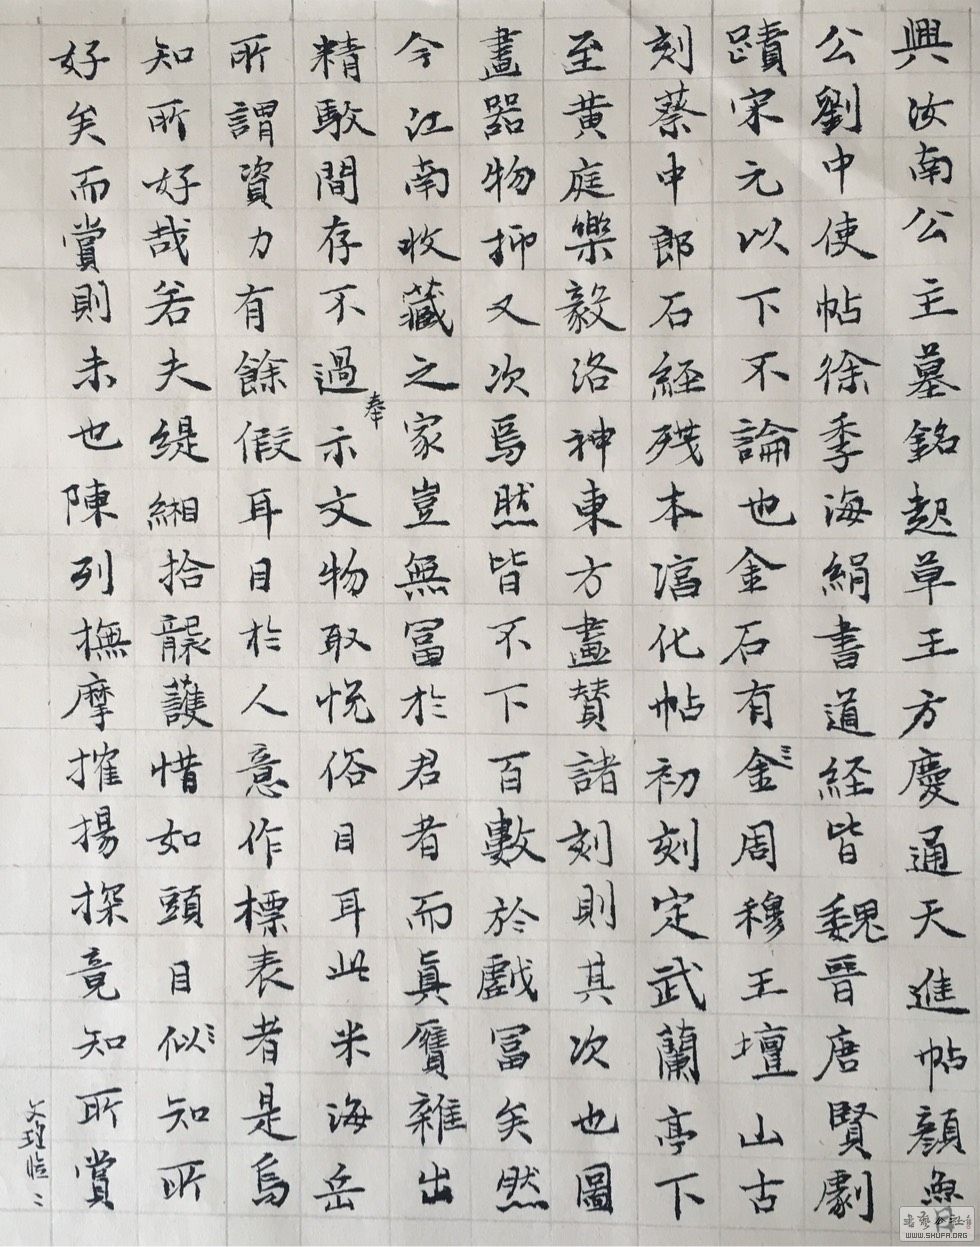 興汝南公主墓銘起草王方慶通天進帖顔魯
公劉中使帖徐季海絹書道経皆魏晉唐賢劇
蹟宋元以下不論也金石有金周穆王壇山古
刻蔡中郎石経殘本淳化帖初刻定武蘭亭下
至黄庭樂毅洛神東方畫賛諸刻則其次也圖
畫器物抑又次焉然皆不下百數於戲冨矣然
今江南收藏之家豈無冨於君者而眞贋雜出
精駁間存不過奉示文物取悦俗目耳此米海岳
所謂資力有餘假耳目於人意作標表者是烏
知所好哉若夫緹緗拾襲護惜如頭目似知所
好矣而賞則未也陳列撫摩揮揚探竟知所賞
文臨
WWW.SHUFA.ORG